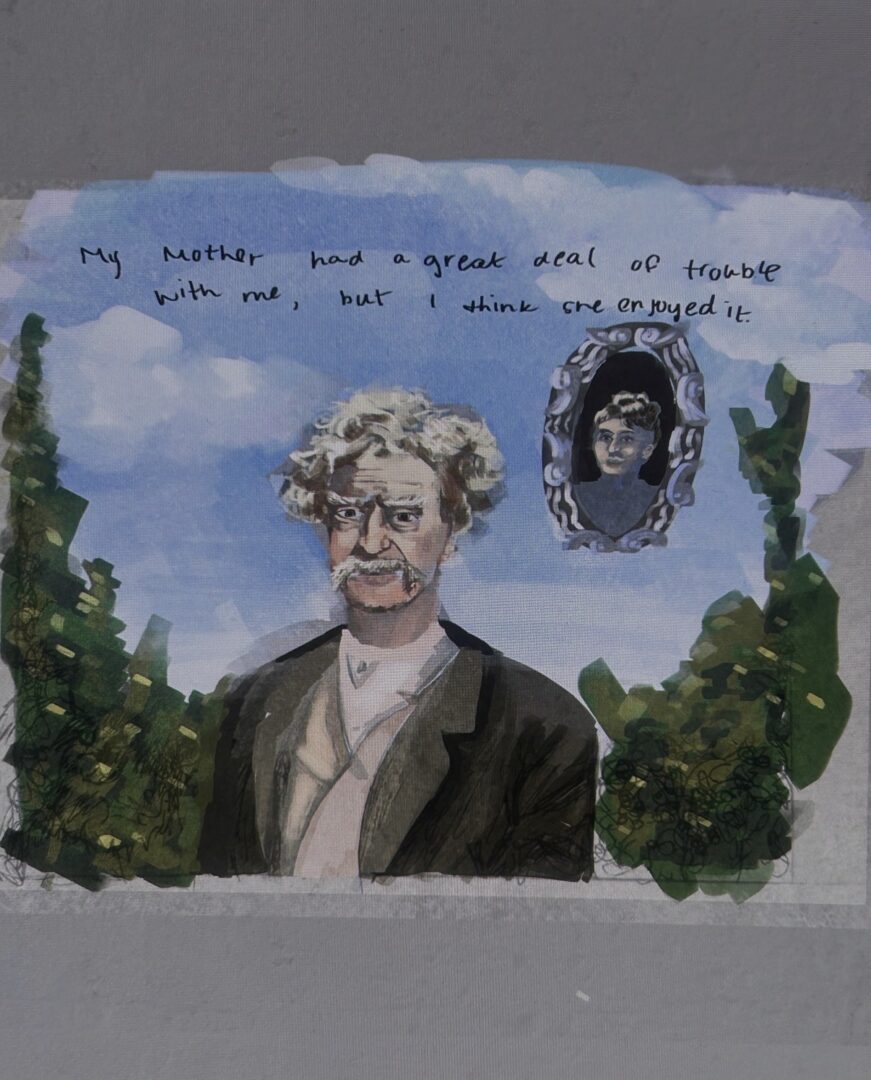 My Mother had a great deal of trouble
with me, but I think she enjoyed it.